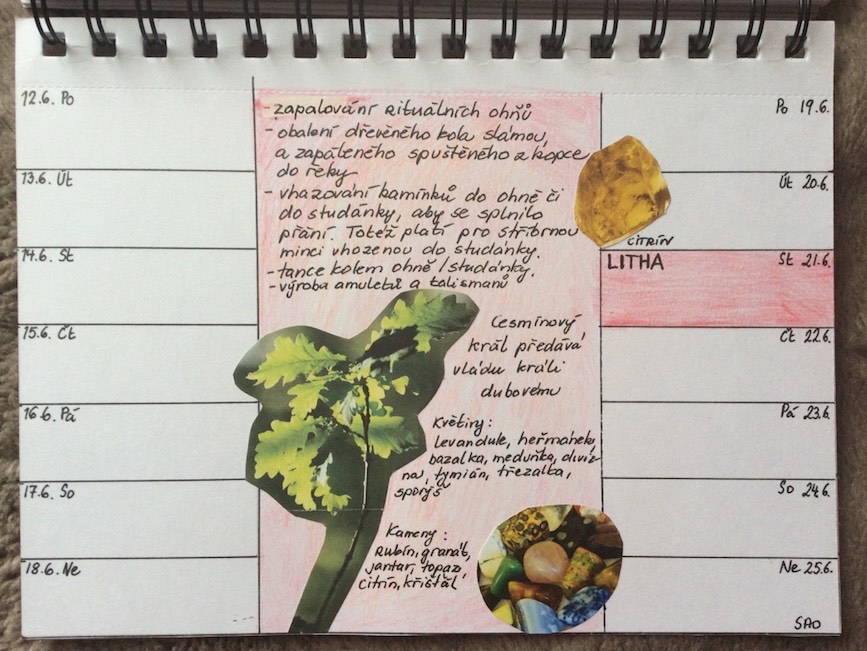 12.6. Po
13.6. Út
14.6. St
15.6. Čt
16.6. Pá
17.6. So
18.6. Ne
- zapalování rituálních ohňů
- obalení dřevěného kola slámou,
a zapáleného spuštěného z kopce
do řeky
- vhazování kamínků do ohně či
do studánky, aby se splnilo
přání. Totéž platí pro stříbrnou
minci vhozenou do studánky.
- tance kolem ohně/studánky.
- výroba amuletů a talismanů
Cesmínový
král předává
vládu králi
dubovému
Květiny:
levandule, heřmánek,
bazalka, meduňka, diviz
na, tymián, třezalka,
sporýš
Kameny:
Rubín, granát,
jantar, topaz
citrín, křišťál
CITRÍN
Po 19.6.
Út 20.6.
LITHA St 21.6.
Čt 22.6.
Pá 23.6.
So 24.6.
Ne 25.6.
SAO